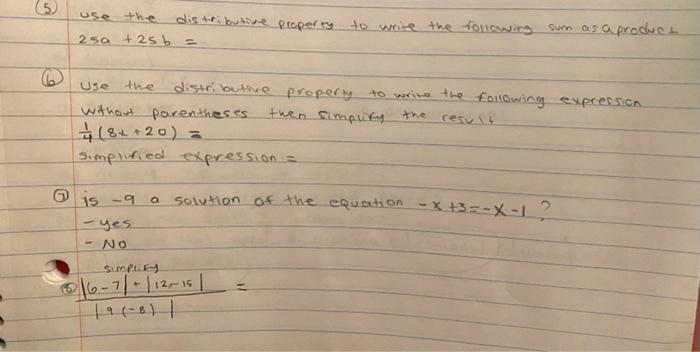 ⑤ use the distributive property to write the following sum as a product
25a + 25b =
⑥ Use the distributive property to write the following expression
without parentheses then simplify the result
1/4 (8x + 20) =
simplified expression =
⑦ is -9 a solution of the equation -x +3 = -x -1 ?
- yes
- NO
simplify
⑧ |6-7| + |12-15| =
|9 (-8) |